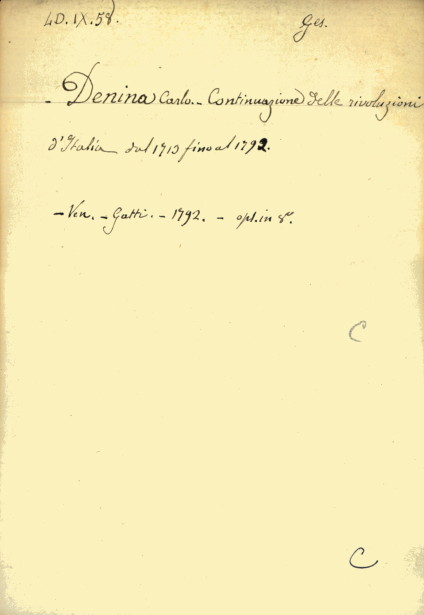 4D.IX.58. Ges.
- Denina Carlo. - Continuazione delle rivoluzioni
d'Italia dal 1713 fino al 1792.
- Ven. - Gatti. - 1792. - opl. in 8°.
C
C